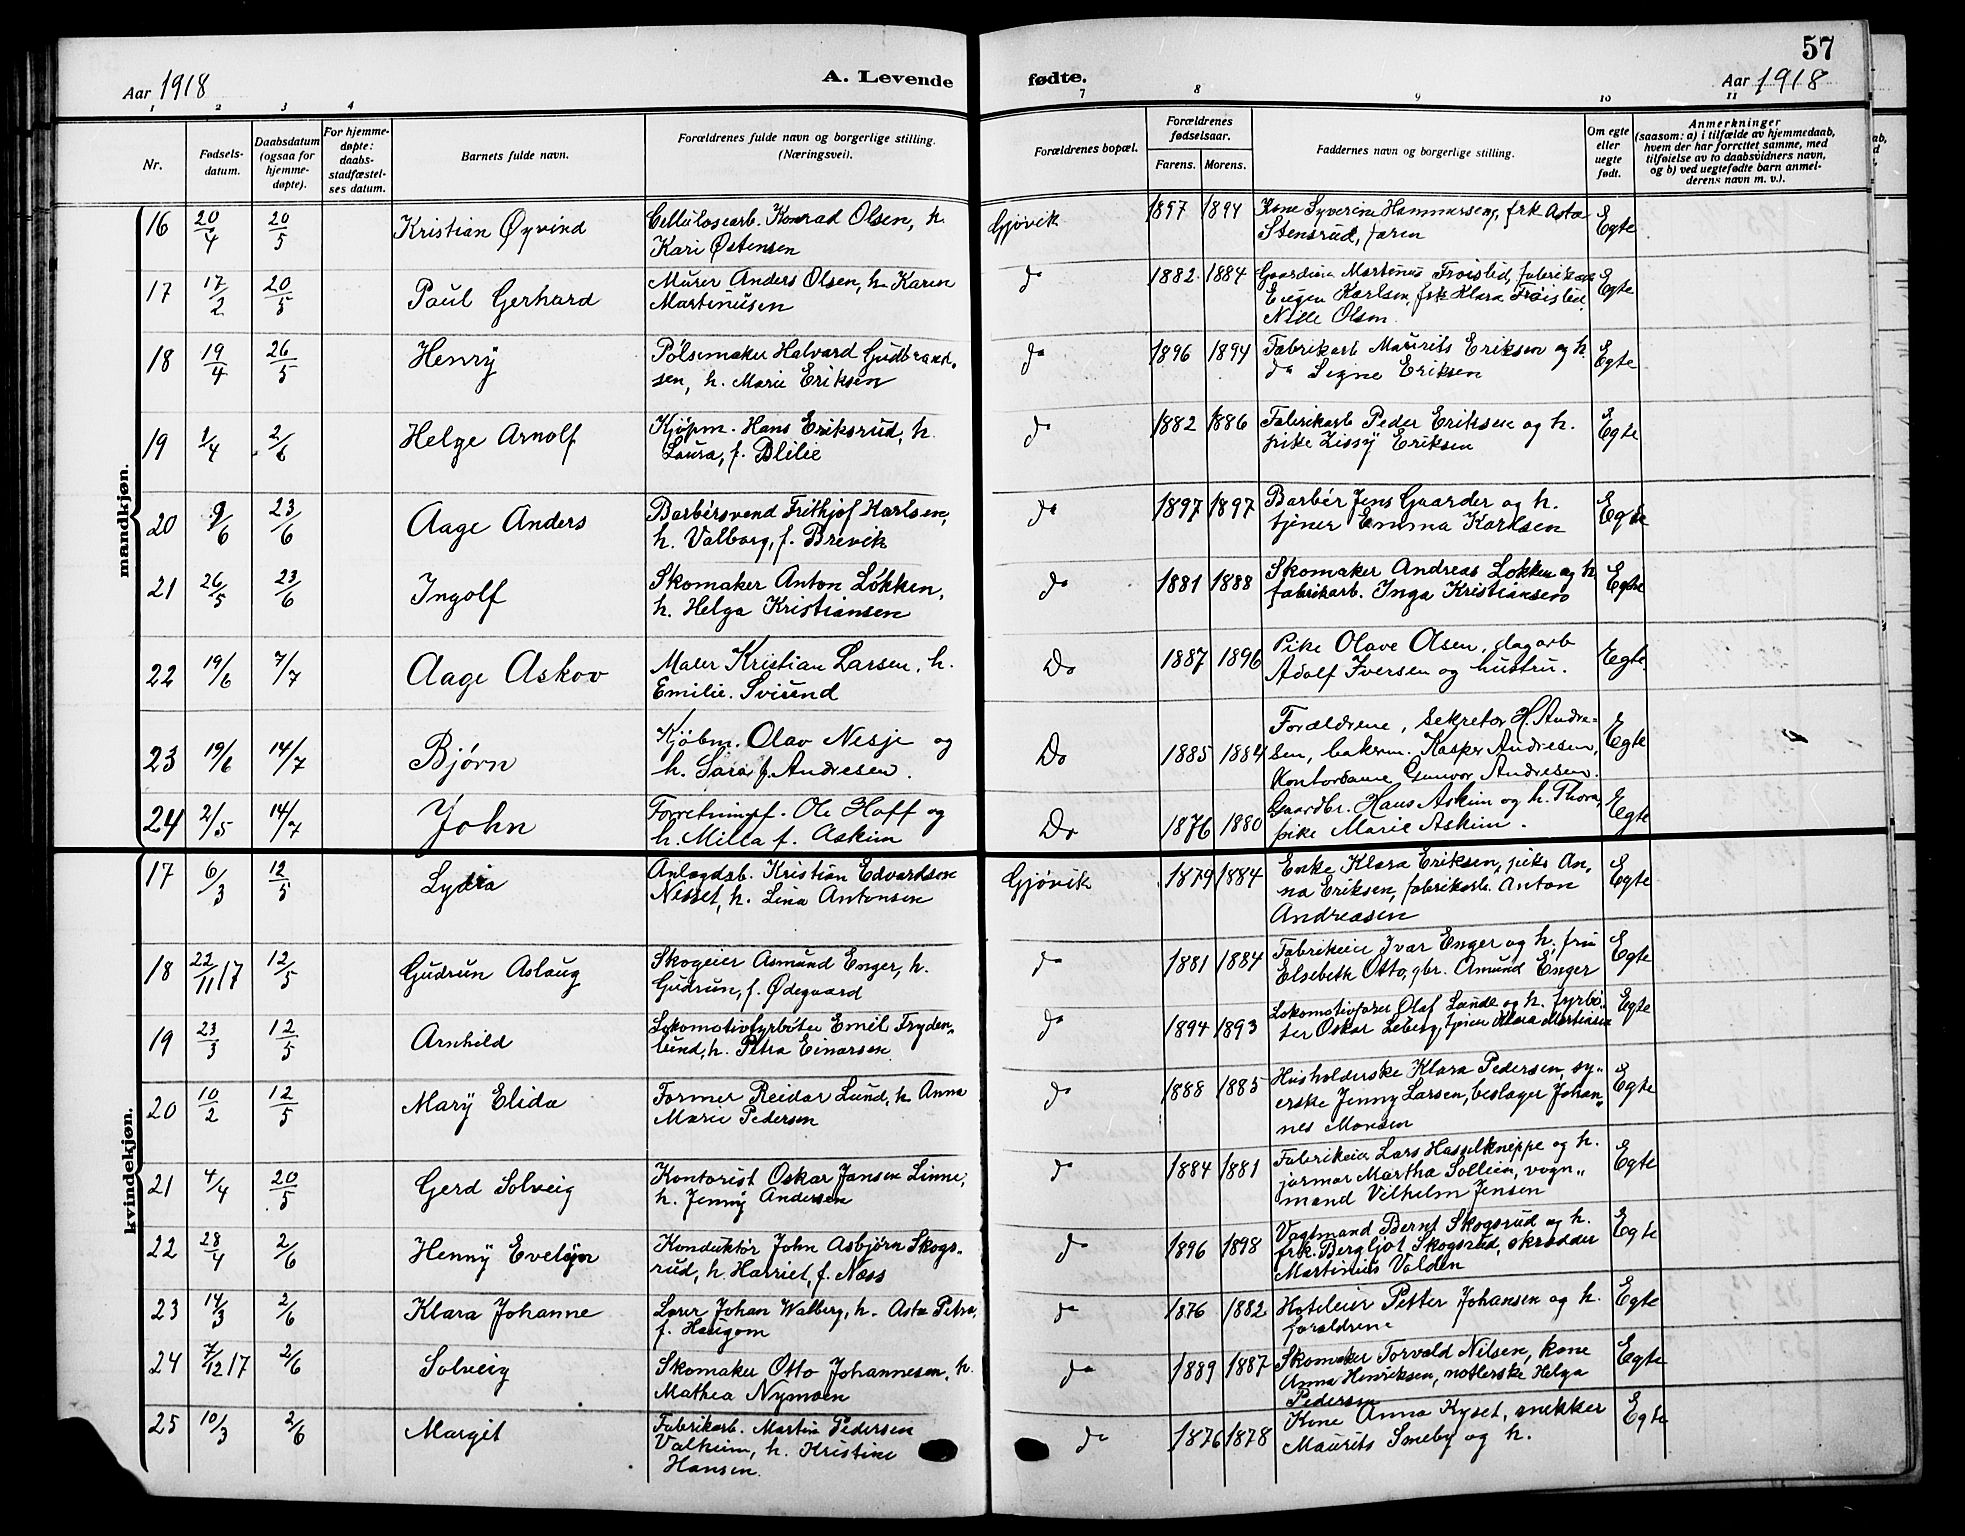 57
Aar 1918
A. Levende fødte.
Aar 1918
1 2 3 4 7 8 9 10 11
Nr.
Fødsels-
datum.
Daabsdatum
(ogsaa for
hjemme-
døpte).
For hjemme-
døpte:
daabs-
stadfæstel-
ses datum.
Barnets fulde navn.
Forældrenes fulde navn og borgerlige stilling.
(Næringsvei).
Forældrenes bopæl.
Forældrenes
fødselsaar.
Farens. Morens.
Faddernes navn og borgerlige stilling.
Om egte
eller
uegte
født.
Anmerkninger
(saasom: a) i tilfælde av hjemmedaab,
hvem der har forrettet samme, med
tilføielse av to daabsvidners navn,
og b) ved uegtefødte barn anmel-
derens navn m. v.).
mandkjøn.
16 20/4 20/5 Kristian Øyvind
Cellulosearb. Konrad Olsen, h.
Kari Østensen
Gjøvik 1897 1894
Kone Syverine Hammerseng, frk Asta
Stensrud, faren
Egte
17 17/2 20/5 Paul Gerhard
Murer Anders Olsen, h. Karen
Martinusen
do 1882 1884
Gaardeier Martinus Frøislid, fabrikarb
Eugen Karlsen, frk Klara Frøislid,
Nille Olsen.
Egte
18 19/4 26/5 Henry
Pølsemaker Halvard Gudbrand-
sen, h. Marie Eriksen
do 1896 1894
Fabrikarb Maurits Eriksen og h.
do Signe Eriksen
Egte
19 1/4 2/6 Helge Arnolf
Kjøpm. Hans Eriksrud, h.
Laura, f. Blilie
do 1882 1886
Fabrikarb Peder Eriksen og h.
pike Lissy Eriksen
Egte
20 9/6 23/6 Aage Anders
Barbérsvend Frithjof Karlsen,
h. Valborg, f. Brevik
do 1897 1897
Barbér Jens Gaarder og h.
tjener Emma Karlsen
Egte
21 26/5 23/6 Ingolf
Skomaker Anton Løkken,
h. Helga Kristiansen
do 1881 1888
Skomaker Andreas Løkken og h
fabrikarb. Inga Kristiansen
Egte
22 19/6 7/7 Aage Askov
Maler Kristian Larsen, h.
Emilie Svieend
Do 1887 1896
Pike Olave Olsen, dagarb
Adolf Iversen og hustru.
Egte
23 19/6 14/7 Bjørn
Kjøbm. Olav Nesje og
h. Sara f. Andresen.
Do 1885 1884
Forældrene, Sekretær H. Andre-
sen, bakerm. Kasper Andresen,
Kontordame Gunvor Andresen.
Egte
24 2/5 14/7 John
Forretn. Ole Hoff og
h. Milla f. Askim
Do 1876 1880
Gaardbr. Hans Askim og h. Thora,
pike Marie Askim.
Egte
kvindekjøn.
17 6/3 12/5 Lydia
Anlægdsb. Kristian Edvardsen
Nesset, h. Lina Antonsen
Gjøvik 1879 1884
Enke Klara Eriksen, pike An-
na Eriksen, fabrikarb. Anton
Andreasen
Egte
18 22/11 17 12/5 Gudrun Aslaug
Skogeier Asmund Enger, h.
Gudrun, f. Ødegaard
do 1881 1884
Fabrikeier Ivar Enger og h. fru
Elsebeth Otto, gbr. Amund Enger
Egte
19 23/3 12/5 Arnhild
Lokomotivfyrbøter Emil Fryden-
lund, h. Petra Einarsen
do 1894 1893
Lokomotivfører Olaf Lunde og h. fyrbø-
ter Oskar Leberg, tjener Klara Martinsen
Egte
20 10/2 12/5 Mary Elida
Former Reidar Lund, h. Anna
Marie Pedersen
do 1888 1885
Husholderske Klara Pedersen, sy-
erske Jenny Larsen, beslager Johan-
nes Monsen
Egte
21 4/4 20/5 Gerd Solveig
Kontorist Oskar Jansen Linne,
h. Jenny Andersen
do 1884 1881
Fabrikeier Lars Hasselkneppe og h.
jormor Martha Sollien, vogn-
mand Vilhelm Jensen
Egte
22 28/4 2/6 Henny Evelyn
Konduktør John Asbjørn Skogs-
rud, h. Harriet, f. Næss
do 1896 1898
Vogtmand Bernt Skogsrud og h.
frk. Bergljot Skogsrud, skrædder
Martinius Volden
Egte
23 14/3 2/6 Klara Johanne
Lærer Johan Walberg, h. Asta Petra,
f. Haugom
do 1876 1882
Hoteleier Petter Johansen og h.
forældrene
Egte
24 7/12 17 2/6 Solveig
Skomaker Otto Johannesen, h.
Mathea Nymoen
do 1889 1887
Skomaker Torvald Nilsen, kone
Anna Henriksen, notlerske Helga
Pedersen
Egte
25 10/3 2/6 Margit
Fabrikarb. Martin Pedersen
Valheim, h. Kristine
Hansen.
do 1876 1878
Kone Anna Kyset, snekker
Maurits Smeby og h.
Egte